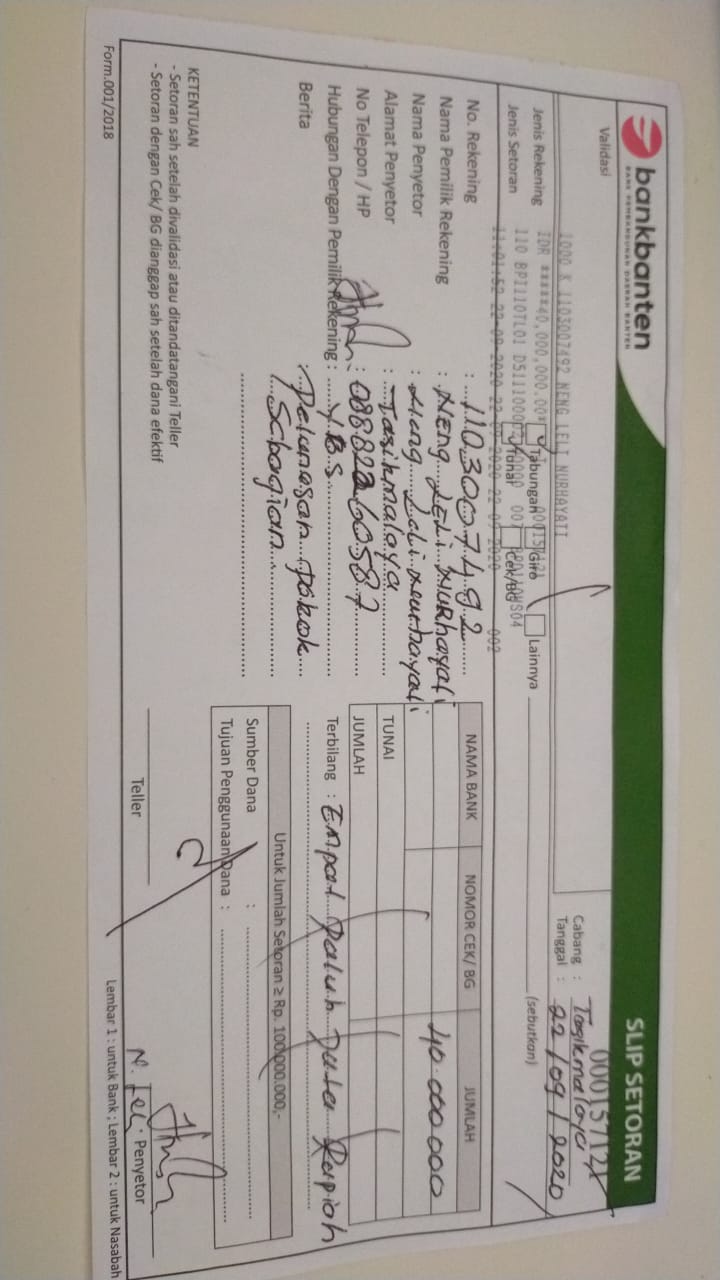 bankbanten
BANK PEMBANGUNAN DAERAH BANTEN
SLIP SETORAN
Validasi
1000 K 1103007492 NENG LELI NURHAYATI
IDR ******40,000,000.00*
11:01:52 22-09-2020 22-09-2020 22-09-2020 002
Cabang : Tasikmalaya
Tanggal : 22/09/2020
Jenis Rekening Tabungan Giro Lainnya (sebutkan)
Jenis Setoran Tunai Cek/BG
No. Rekening : 1103007492
Nama Pemilik Rekening : NENG LELI NURhayati
Nama Penyetor : Neng Leli Nurhayati
Alamat Penyetor : Tasikmalaya
No Telepon / HP :
Hubungan Dengan Pemilik Rekening : Y.B.S
Berita : Pelunasan Pokok
Sebagian
NAMA BANK NOMOR CEK/ BG JUMLAH
40.000.000
TUNAI
JUMLAH
Terbilang : Empat Puluh Juta Rupiah
Untuk Jumlah Setoran ≥ Rp. 100.000.000,-
Sumber Dana :
Tujuan Penggunaan Dana :
KETENTUAN
- Setoran sah setelah divalidasi atau ditandatangani Teller
- Setoran dengan Cek/ BG dianggap sah setelah dana efektif
Teller
N. Leli
Penyetor
Form.001/2018
Lembar 1 : untuk Bank ; Lembar 2 : untuk Nasabah